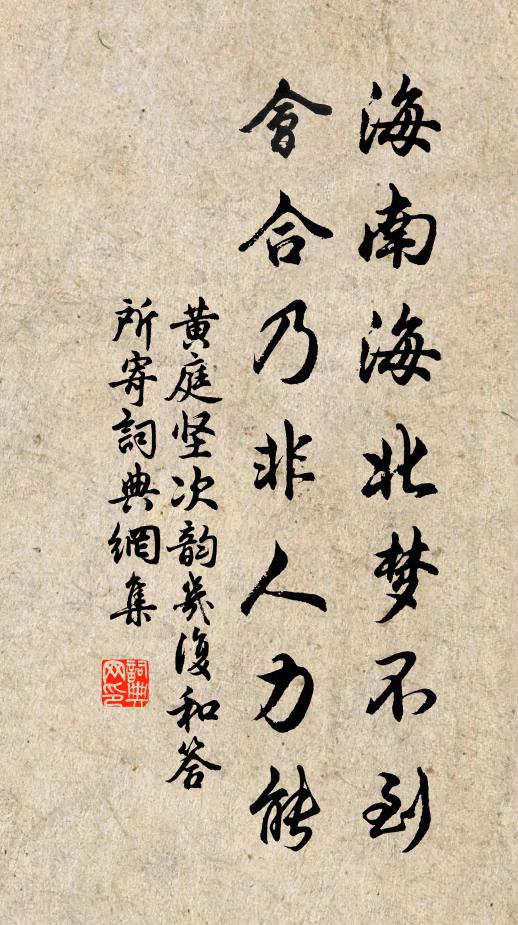 海南海北梦不到
會合乃非人力能
黄庭坚次韵幾復和答
所寄詞典網集
詞典网印